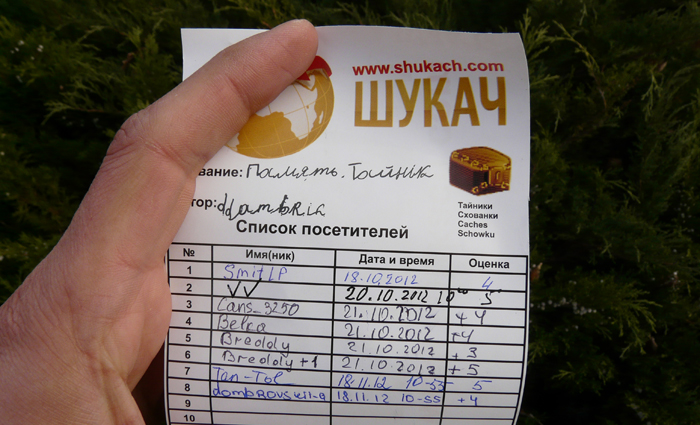 www.shukach.com
ШУКАЧ
вание: Память. Тайнік
тор: ddambria
Тайники
Схованки
Caches
Schowku
Список посетителей
№ Имя(ник) Дата и время Оценка
1 SmitLP 18.10.2012 4
2 VV 20.10.2012 10°° 5
3 Cans_3250 21.10.2012 +4
4 Belka 21.10.2012 +4
5 Breddy 21.10.2012 +3
6 Breddy+1 21.10.2012 +5
7 Tan-Tol 18.11.12 10-55 5
8 dombrovskil-a 18.11.12 10-55 +4
9
10